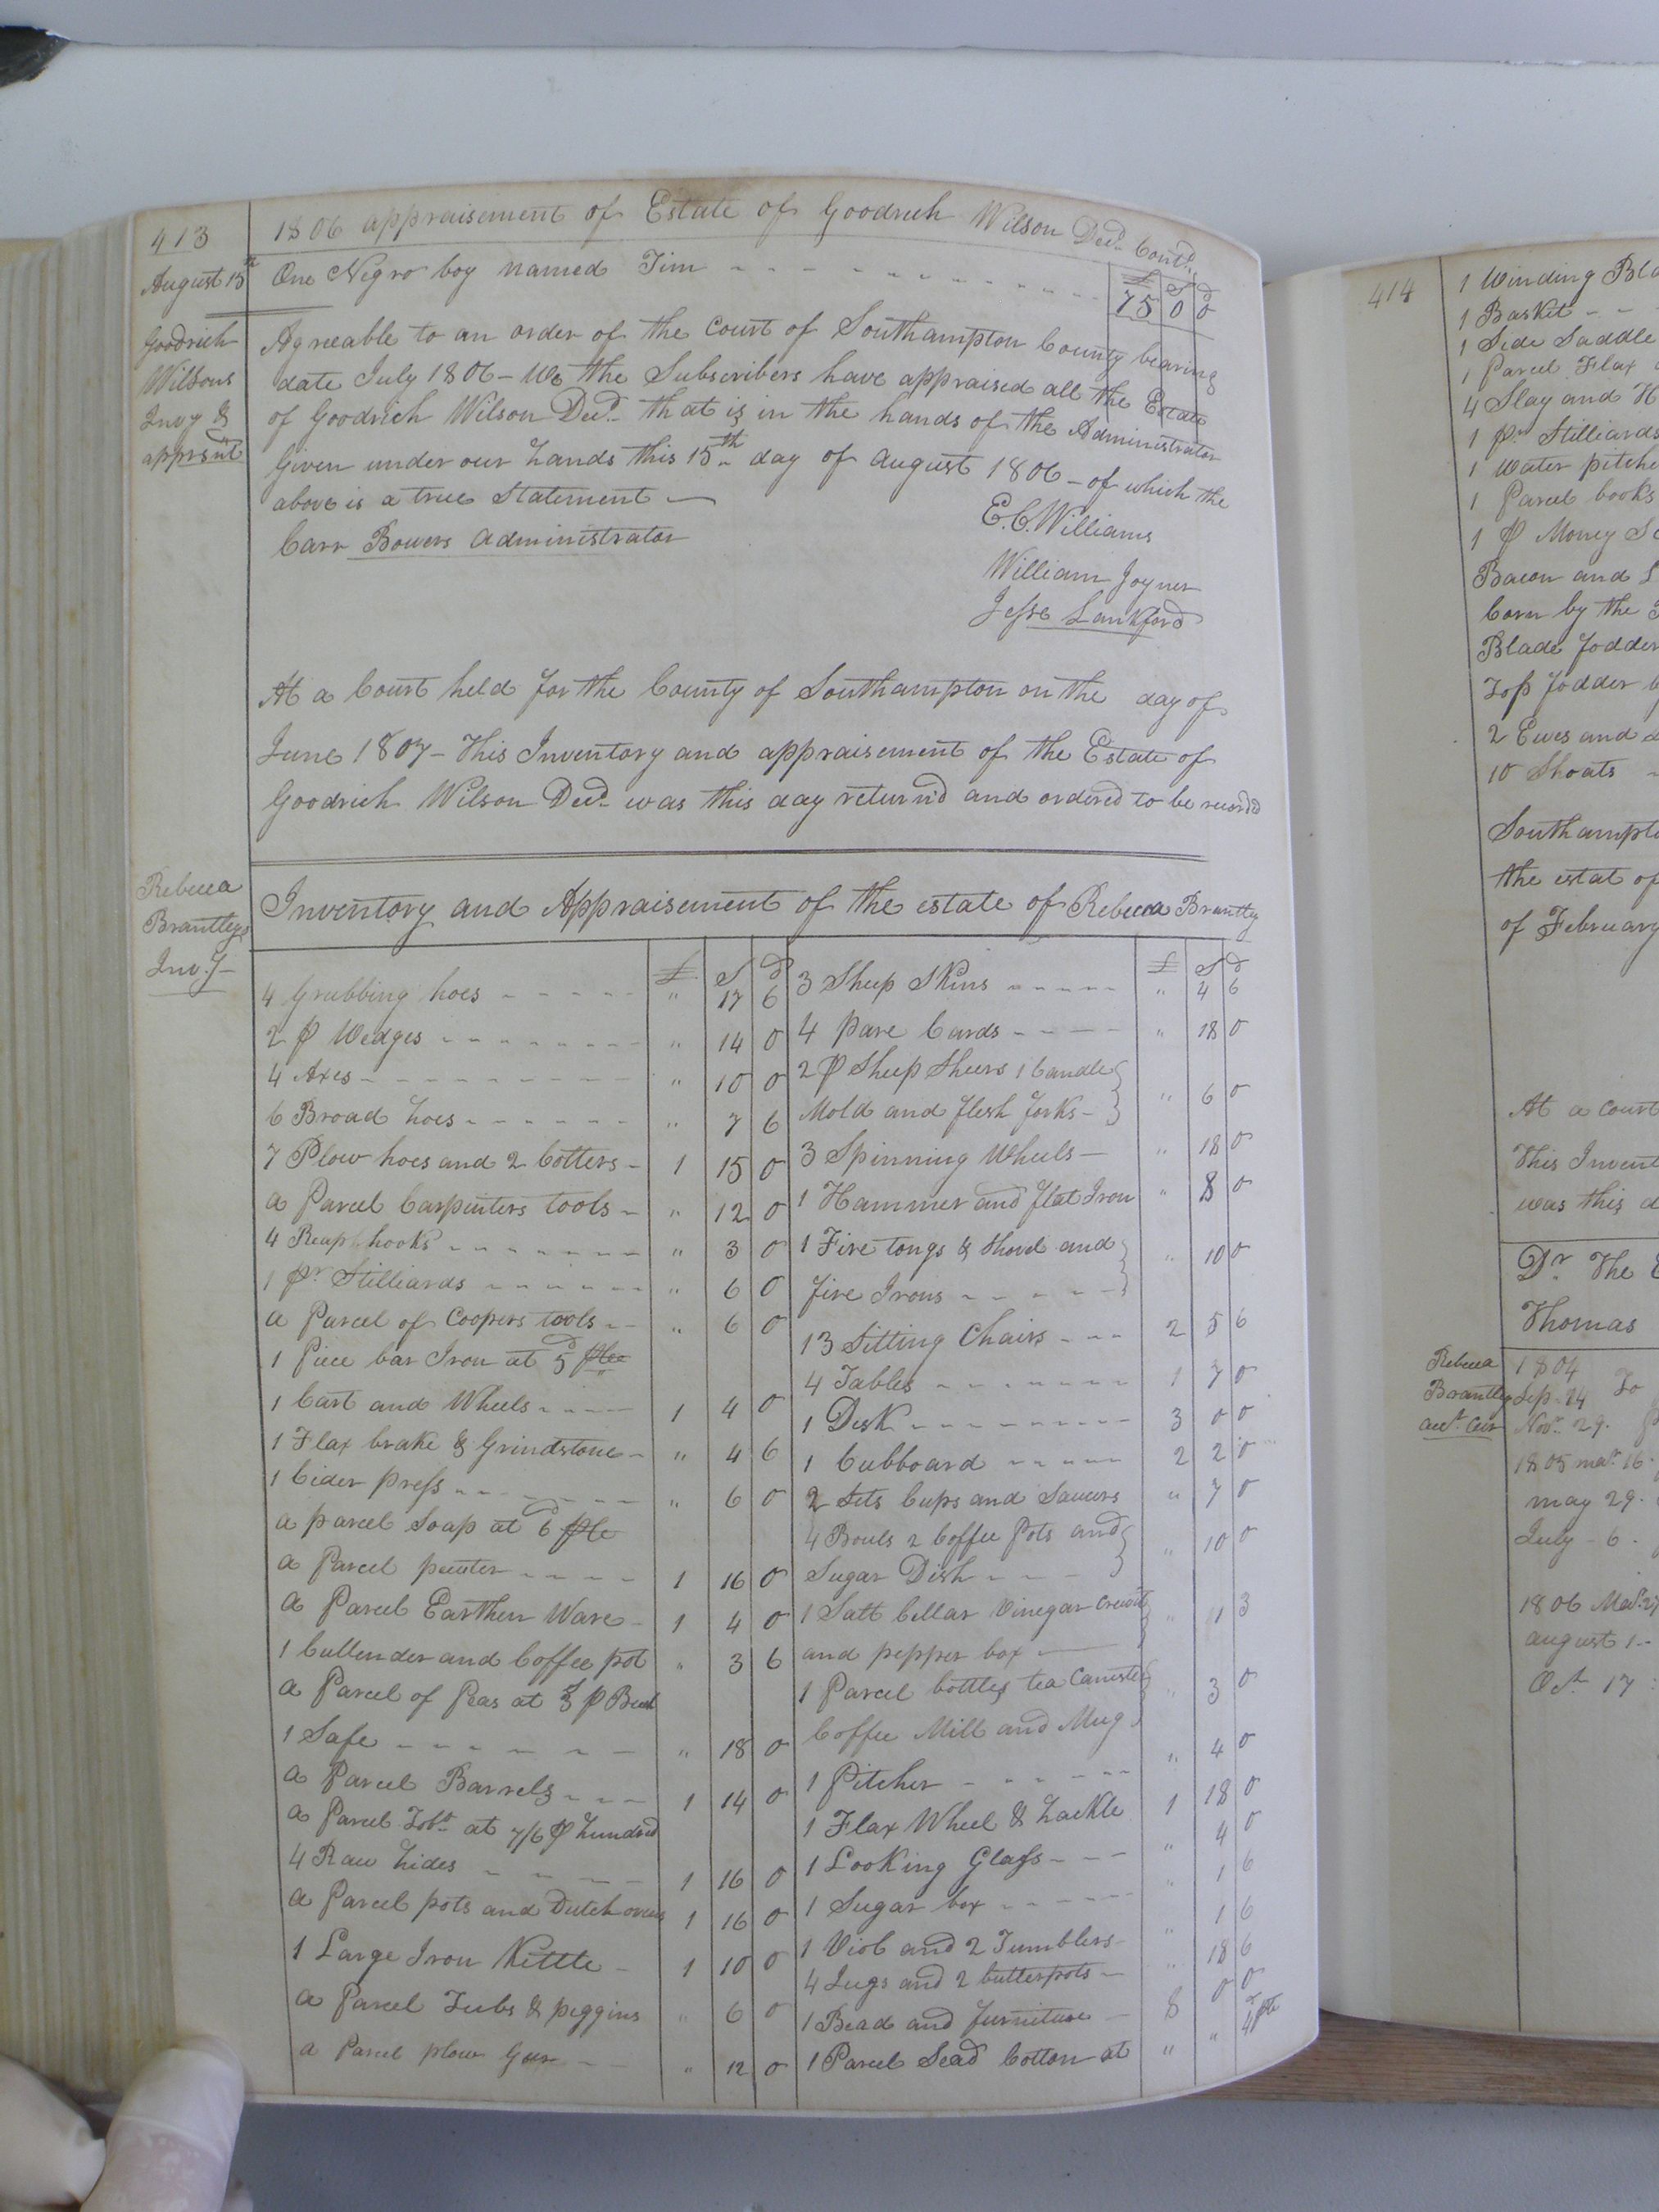 413
1806 appraisement of Estate of Goodrich Wilson Decd. Contd.
August 15th
One Negro boy named Tim - - - - £ S d
75 0 0
Goodrich
Wilsons
Invy &
apprsmt
Agreeable to an order of the Court of Southampton County bearing
date July 1806 - We the Subscribers have appraised all the Estate
of Goodrich Wilson Decd. that is in the hands of the Administrator
Given under our hands this 15th day of August 1806 - of which the
above is a true Statement -
Carr Bowers Administrator
E. C. Williams
William Joyner
Jesse Lankford
At a Court held for the County of Southampton on the day of
June 1807 - This Inventory and appraisement of the Estate of
Goodrich Wilson Decd. was this day returnd and ordered to be recordd
Rebecca
Brantleys
Inv.y
Inventory and Appraisement of the estate of Rebecca Brantley
£ S d
4 Grubbing hoes - - " 17 6
2 p Wedges - - " 14 0
4 Axes - - " 10 0
6 Broad hoes - - " 7 6
7 Plow hoes and 2 Cotters - 1 15 0
a Parcel Carpenters tools - " 12 0
4 Reaphooks - - " 3 0
1 pr Stilliards - - " 6 0
a Parcel of Coopers tools - - " 6 0
1 Piece bar Iron at 5d
1 Cart and Wheels - - 1 4 0
1 Flax brake & Grindstone - " 4 6
1 Cider press - - " 6 0
a parcel Soap at 6d
a Parcel peuter - - 1 16 0
a Parcel Earthen Ware - 1 4 0
1 Cullender and Coffee pot " 3 6
a Parcel of Peas at 3 p Bush
1 Safe - - " 18 0
a Parcel Barrels - - 1 14 0
a Parcel Tobo. at 7/6 p hundred
4 Raw hides - - 1 16 0
a Parcel pots and Dutch ovens 1 16 0
1 Large Iron Kettle - 1 10 0
a Parcel Tubs & peggins " 6 0
a Parcel plow Gear - - " 12 0
£ S d
3 Sheep Skins - - " 4 6
4 pare Cards - - " 18 0
2 p Sheep Sheers 1 Candle
Mold and flesh forks - " 6 0
3 Spinning Wheels - " 18 0
1 Hammer and flat Iron " 8 0
1 Fire tongs & shovel and
fire Irons - - " 10 0
13 Sitting Chairs - - 2 5 6
4 Tables - - 1 7 0
1 Desk - - 3 0 0
1 Cubboard - - 2 2 0
2 Sets Cups and Saucers " 7 0
4 Bouls 2 Coffee Pots and
Sugar Dish - - " 10 0
1 Salt Cellar Vinegar Creuit
and pepper box - " 11 3
1 Parcel bottles tea Canister
Coffee Mill and Mug " 3 0
1 Pitcher - - " 4 0
1 Flax Wheel & hackle 1 18 0
1 Looking Glass - - " 4 0
1 Sugar box - - " 1 6
1 Viol and 2 Tumblers - " 1 6
4 Jugs and 2 butterpots - " 18 6
1 Bead and furniture - 8 0 0
1 Parcel Sead Cotton at " "
414
1 Winding
1 Basket - -
1 Side Saddle
1 Parcel Flax
4 Slay and
1 pr Stilliards
1 Water
1 Parcel books
1 p Money
Bacon and
Corn by the
Blade fodder
Top fodder
2 Ewes and
10 Shoats
the estat of
of February
At a Court
This
was this
Dr. The
Thomas
Rebecca
Brantley
1804
Sep. 14 To
Nov. 29.
1805 mar. 16.
may 29.
July - 6.
1806 Mar. 27
august 1 -
Oct. 17